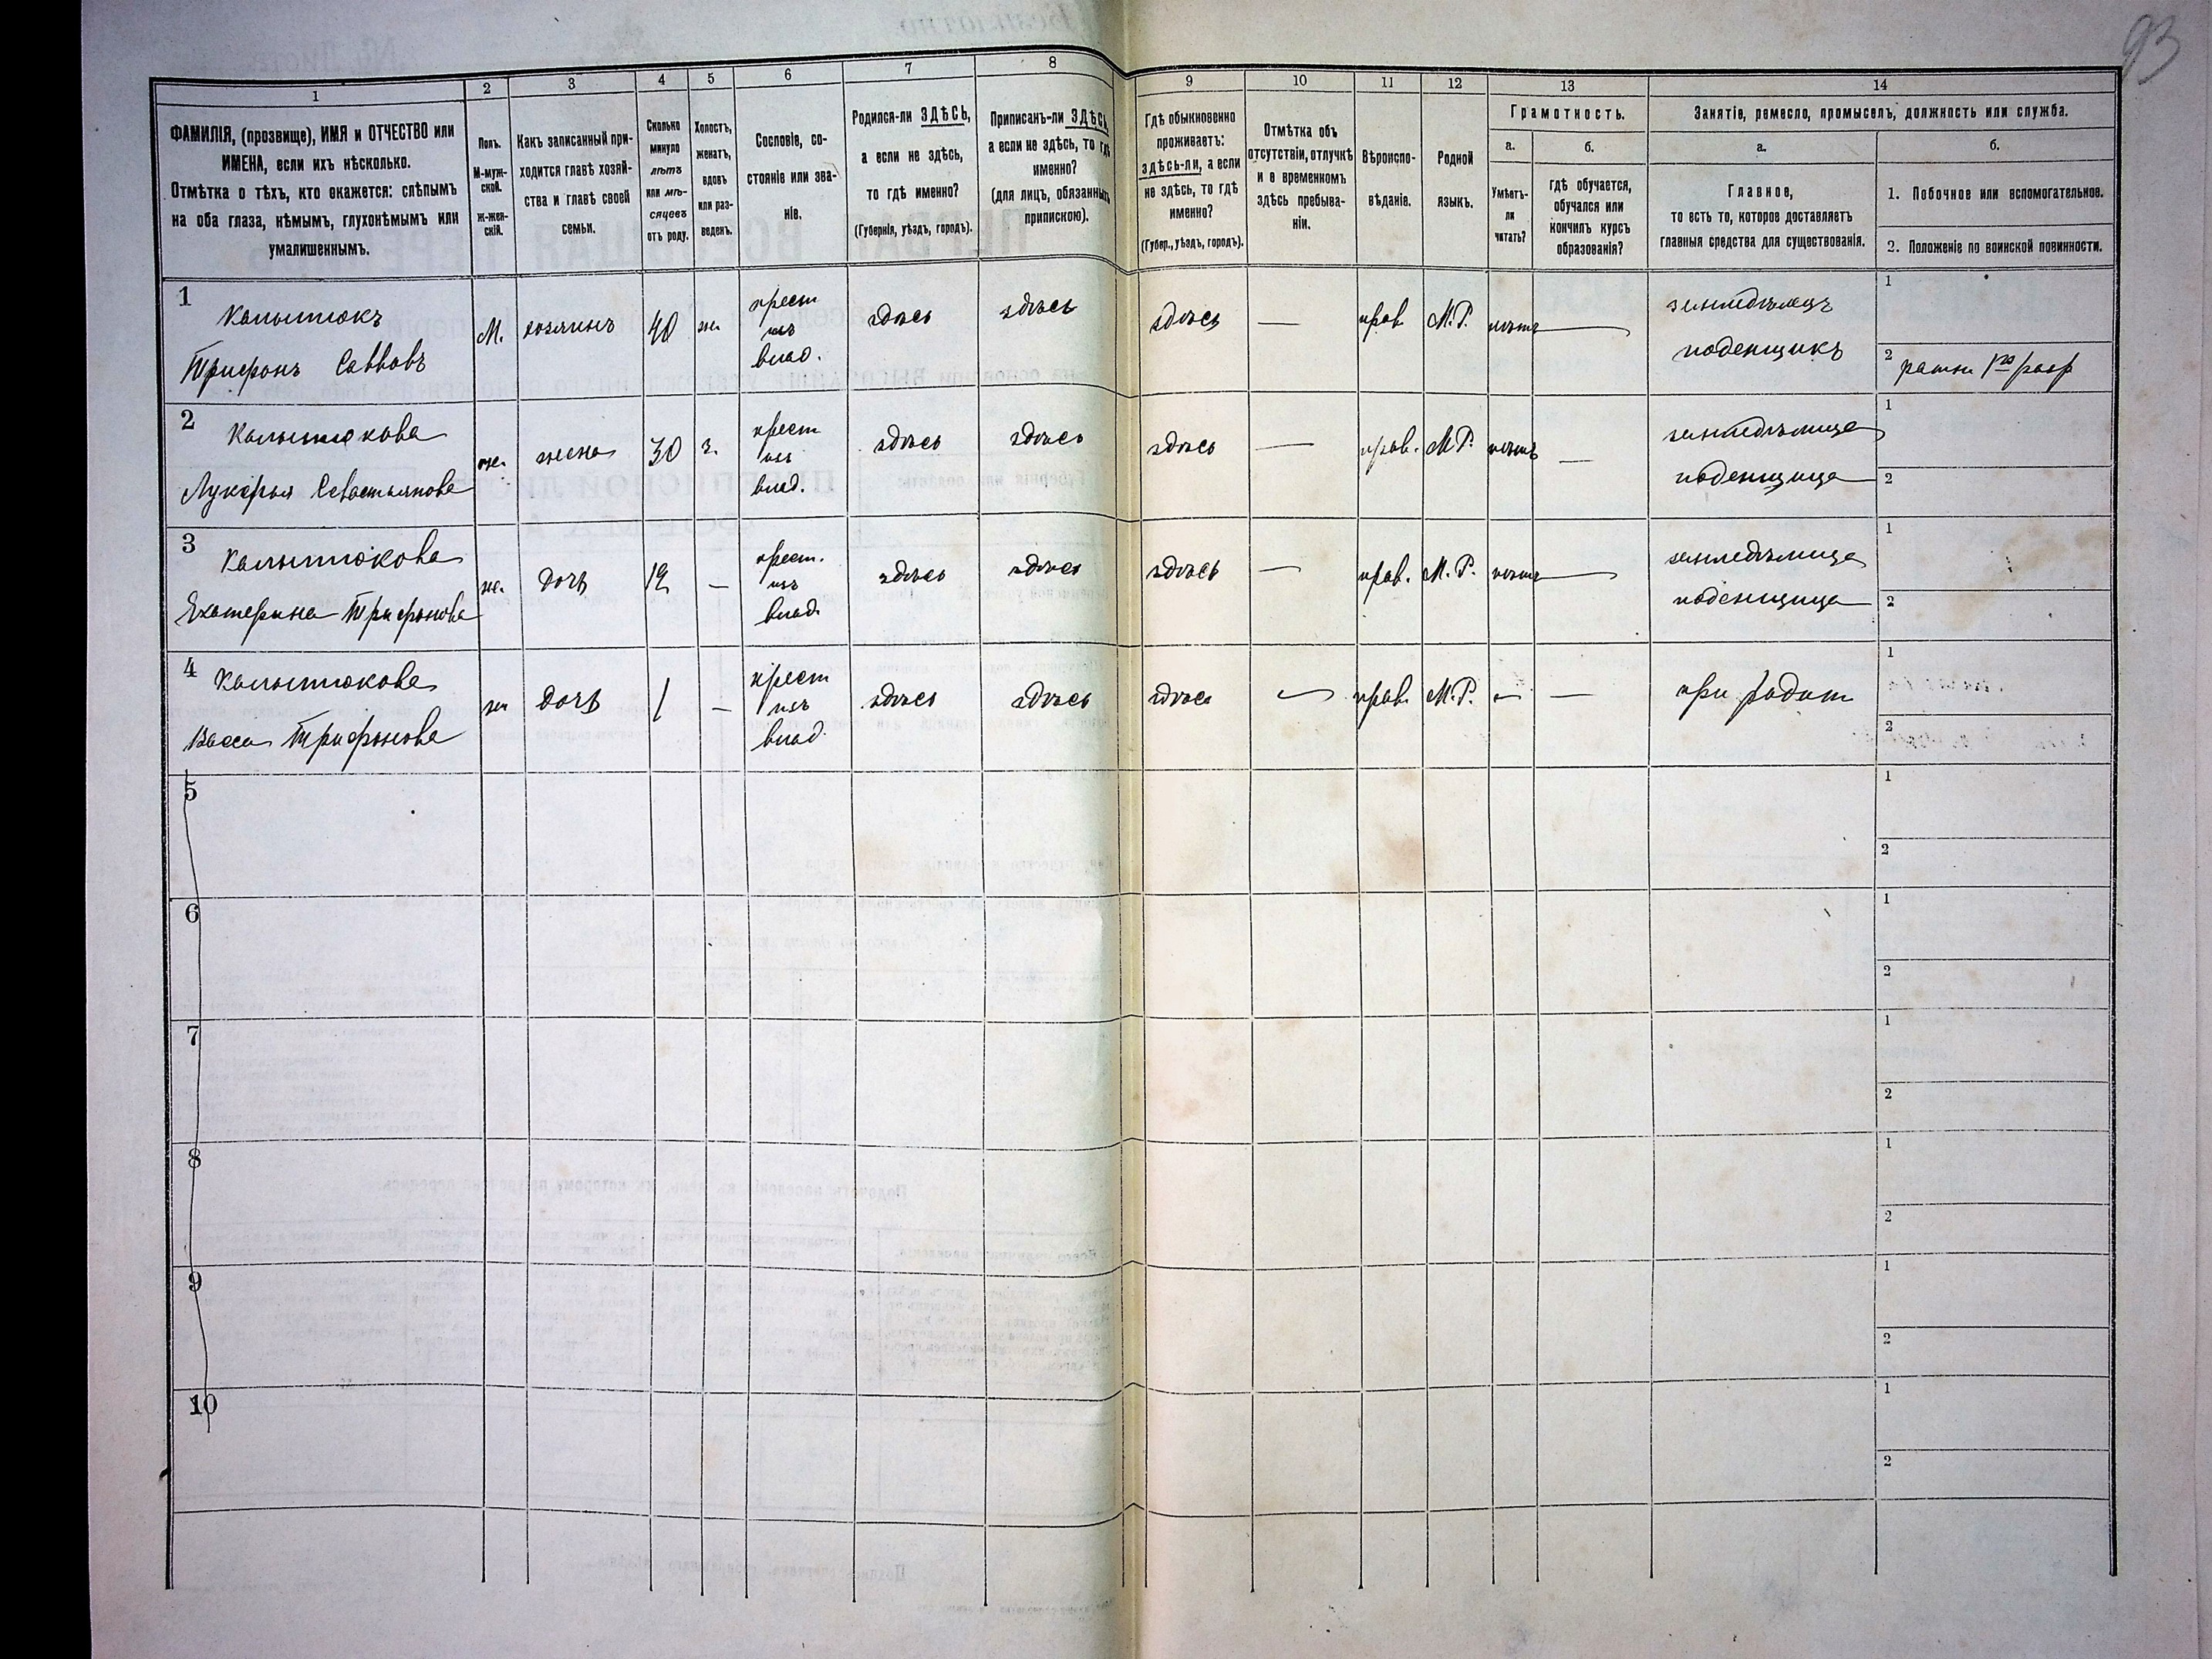 93
1
2
3
4
5
6
7
8
9
10
11
12
13
14
ФАМИЛІЯ, (прозвище), ИМЯ и ОТЧЕСТВО или
ИМЕНА, если ихъ нѣсколько.
Отмѣтка о тѣхъ, кто окажется: слѣпымъ
на оба глаза, нѣмымъ, глухонѣмымъ или
умалишеннымъ.
Полъ.
М-муж-
ской.
Ж-жен-
скій.
Какъ записанный при-
ходится главѣ хозяй-
ства и главѣ своей
семьи.
Сколько
минуло
лѣтъ
или мѣ-
сяцевъ
отъ роду.
Холостъ,
женатъ,
вдовъ
или раз-
веденъ.
Сословіе, со-
стояніе или зва-
ніе.
Родился-ли ЗДѢСЬ,
а если не здѣсь,
то гдѣ именно?
(Губернія, уѣздъ, городъ).
Приписанъ-ли ЗДѢСЬ,
а если не здѣсь, то гдѣ
именно?
(для лицъ, обязанныхъ
припискою).
Гдѣ обыкновенно
проживаетъ:
ЗДѢСЬ-ЛИ, а если
не здѣсь, то гдѣ
именно?
(Губер., уѣздъ, городъ).
Отмѣтка объ
отсутствіи, отлучкѣ
и о временномъ
здѣсь пребыва-
ніи.
Вѣроиспо-
вѣданіе.
Родной
языкъ.
Грамотность.
а.
Умѣетъ-
ли
читать?
б.
гдѣ обучается,
обучался или
кончилъ курсъ
образованія?
Занятіе, ремесло, промыселъ, должность или служба.
а.
Главное,
то есть то, которое доставляетъ
главныя средства для существованія.
б.
1. Побочное или вспомогательное.
2. Положеніе по воинской повинности.
1
Трифонъ Саввовъ
М.
хозяинъ
40
ж.
крест
изъ
влад.
здѣсь
здѣсь
здѣсь
—
прав
М.Р.
нѣтъ
—
земледѣлецъ
поденщикъ
1
2 ратн 1го разр
2
Лукерья Севастьянова
ж.
жена
30
з.
крест
изъ
влад.
здѣсь
здѣсь
здѣсь
—
прав.
М.Р.
нѣтъ
—
земледѣлица
поденщица
1
2
3
Екатерина Трифонова
ж.
дочь
12
—
крест.
изъ
влад
здѣсь
здѣсь
здѣсь
—
прав.
М.Р.
нѣтъ
—
земледѣлица
поденщица
1
2
4
Васса Трифонова
ж
дочь
1
—
крест
изъ
влад
здѣсь
здѣсь
здѣсь
—
прав.
М.Р.
—
—
при родит
1
2
5
1
2
6
1
2
7
1
2
8
1
2
9
1
2
10
1
2